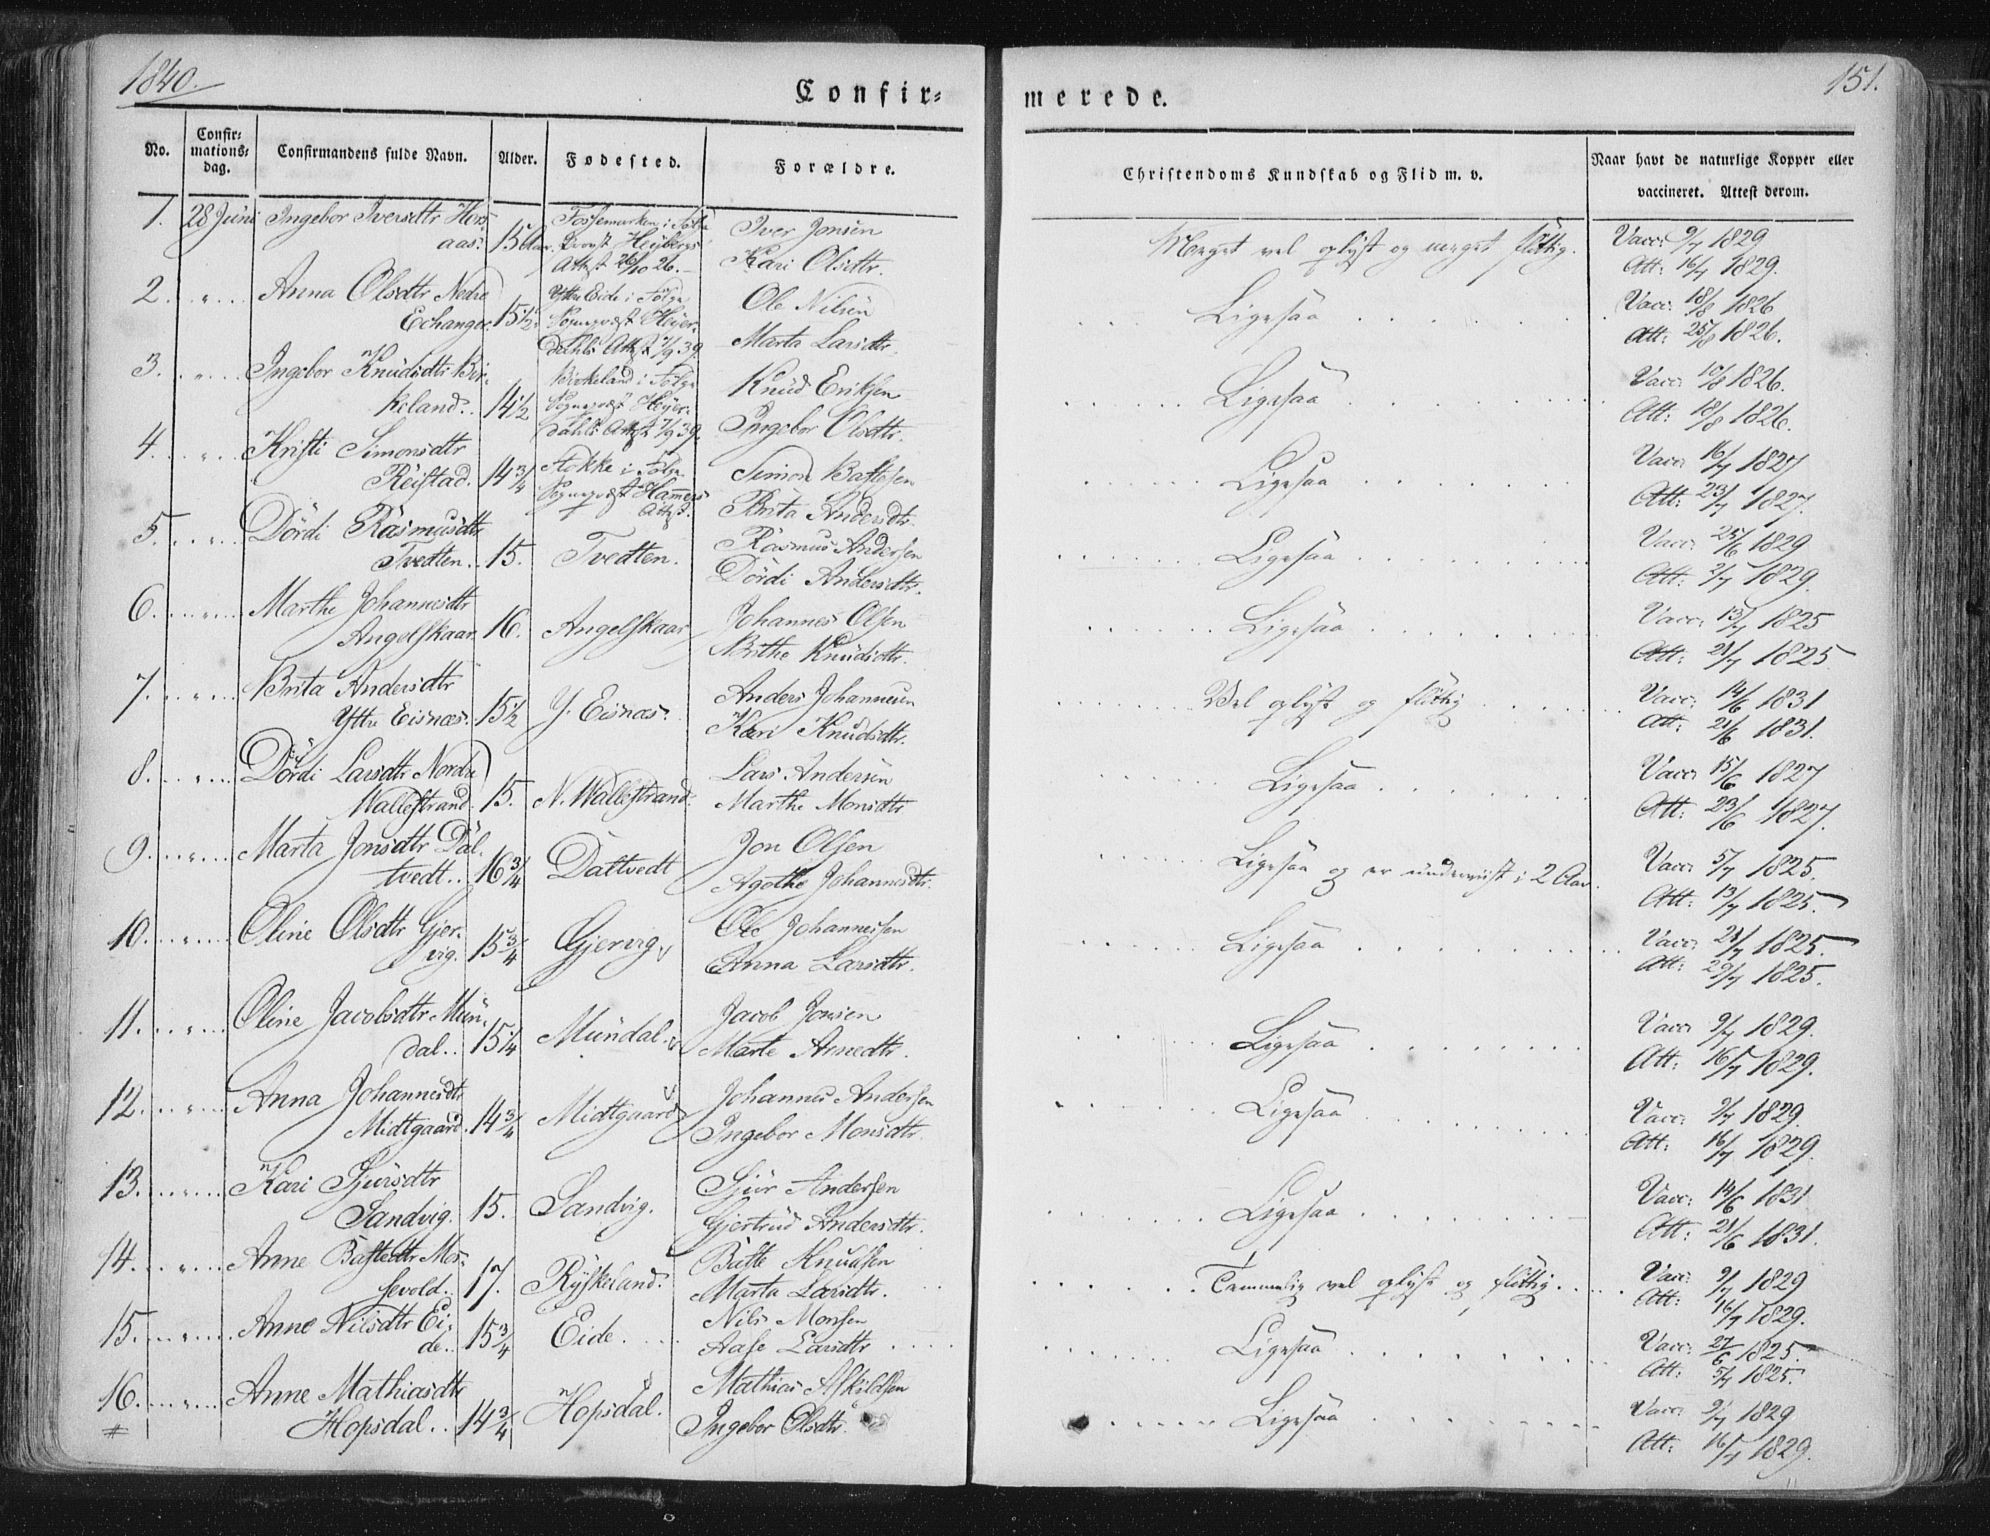 1840.
151.
Confir=
merede.
No.
Confir=
mations=
dag.
Confirmandens fulde Navn.
Alder.
Fødested.
Forældre.
Christendoms Kundskab og Flid m. v.
Naar havt de naturlige Kopper eller
vaccineret. Attest derom.
1. 28 Juni Ingebor Iversdtr
15 Aar. Provst Heÿbergs
Attest 26/10 26.
Iver Jonsen
Kari Olsdtr.
Meget vel oplyst og meget flittig.
Vacc: 9/7 1829
Att: 16/7 1829.
2. Anna Olsdtr Nedre
Echanger. 15½
Ÿttre Eide i
Sognepræst Heÿer=
dahls Attest 7/9 39.
Ole Nilsen
Marta Larsdtr.
Ligesaa
Vacc: 18/8 1826
Att: 25/8 1826.
3. Ingebor Knudsdtr Bir=
keland. 14½
Birkeland i
Sognepræst Heÿer=
dahls Attest 7/9 39.
Knud Eriksen
Ingebor Olsdtr.
Ligesaa
Vacc: 10/8 1826.
Att: 18/8 1826.
4. Kristi Simonsdtr
Reistad. 14¾
Stokke i
Sognepræst Hamers
Attest.
Simon
Brita Andersdtr.
Ligesaa
Vacc: 16/7 1827
Att: 23/7 1827.
5. Dördi Rasmusdtr
Tvedten. 15. Tvedten.
Rasmus Andersen
Dördi Andersdtr.
Ligesaa
Vacc: 25/6 1829
Att: 2/7 1829.
6. Marthe Johannesdtr
Angelskaar. 16. Angelskaar
Johannes Olsen
Brithe Knudsdtr.
Ligesaa
Vacc: 13/7 1825
Att: 21/7 1825
7. Brita Andersdtr
Yttre Eisnæs. 15½ Y. Eisnæs.
Anders Johannesen
Kari Knudsdtr.
Vel oplyst og flittig
Vacc: 14/6 1831
Att: 21/6 1831.
8. Dördi Larsdtr Nordre
Wallestrand. 15. N. Wallestrand.
Lars Andersen
Marthe Monsdtr
Ligesaa
Vacc: 15/6 1827
Att: 23/6 1827.
9. Marta Jonsdtr Dal=
tvedt. 16¾ Daltvedt
Jon Olsen
Agothe Johannesdtr.
Ligesaa og er underviist i 2 Aar.
Vacc: 5/7 1825.
Att: 13/7 1825.
10. Oline Olsdtr Gjer=
vig. 15¾ Gjervig.
Ole Johannesen
Anna Larsdtr.
Ligesaa
Vacc: 21/7 1825.
Att: 29/7 1825.
11. Oline Jacobsdtr Mun=
dal. 15¼ Mundal.
Jacob Jonsen
Marte Arnedtr.
Ligesaa
Vacc: 9/7 1829.
Att: 16/7 1829.
12. Anna Johannesdtr
Midtgaard. 14¾ Midtgaard
Johannes Andersen
Ingebor Monsdtr.
Ligesaa
Vacc: 9/7 1829.
Att: 16/7 1829.
13. Kari Sjursdtr
Sandvig. 15. Sandvig.
Sjur Andersen
Gjertrud Andersdtr.
Ligesaa
Vacc: 14/6 1831
Att: 21/6 1831.
14. Anne
17.
Knudsen
Marta Larsdtr.
Temmelig vel oplyst og flittig.
Vacc: 9/7 1829
Att: 16/7 1829.
15. Anne Nilsdtr Ei=
de. 15¾ Eide.
Nils Monsen
Aase Larsdtr
Ligesaa
Vacc: 27/6 1825.
Att: 5/7 1825.
16. Anne Mathiasdtr
Hopsdal. 14¾ Hopsdal.
Mathias Askildsen
Ingebor Olsdtr.
Ligesaa
Vacc: 9/7 1829
Att: 16/7 1829.
#